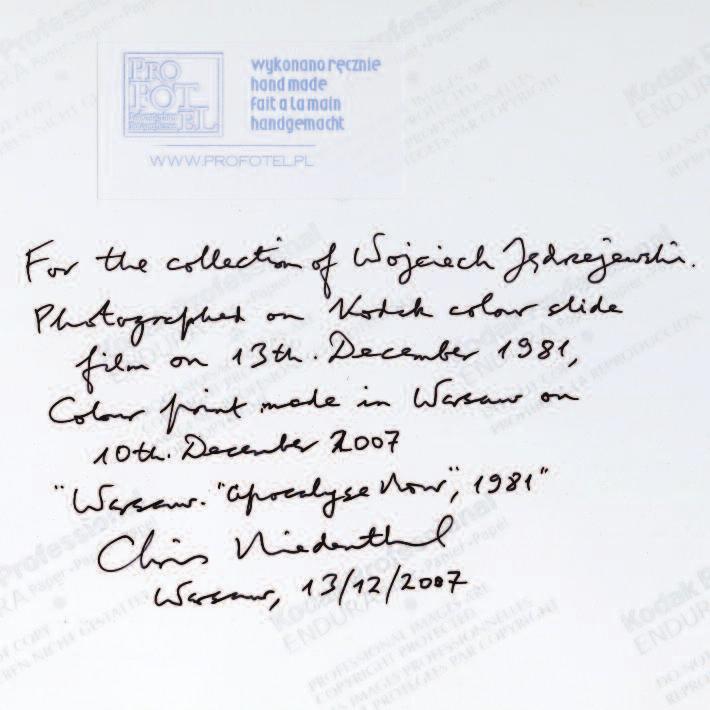 PRO
FOT
EL
wykonano ręcznie
hand made
fait a la main
handgemacht
WWW.PROFOTEL.PL
For the collection of Wojciech Jędrzejewski.
Photographed on Kodak colour slide
film on 13th. December 1981,
Colour print made in Warsaw on
10th. December 2007
"Warsaw. "Apocalypse Now", 1981"
Chris Niedenthal
Warsaw, 13/12/2007
Kodak
ENDURA
Professional
Papier
PROFESSIONAL IMAGES ARE
COPYRIGHT PROTECTED